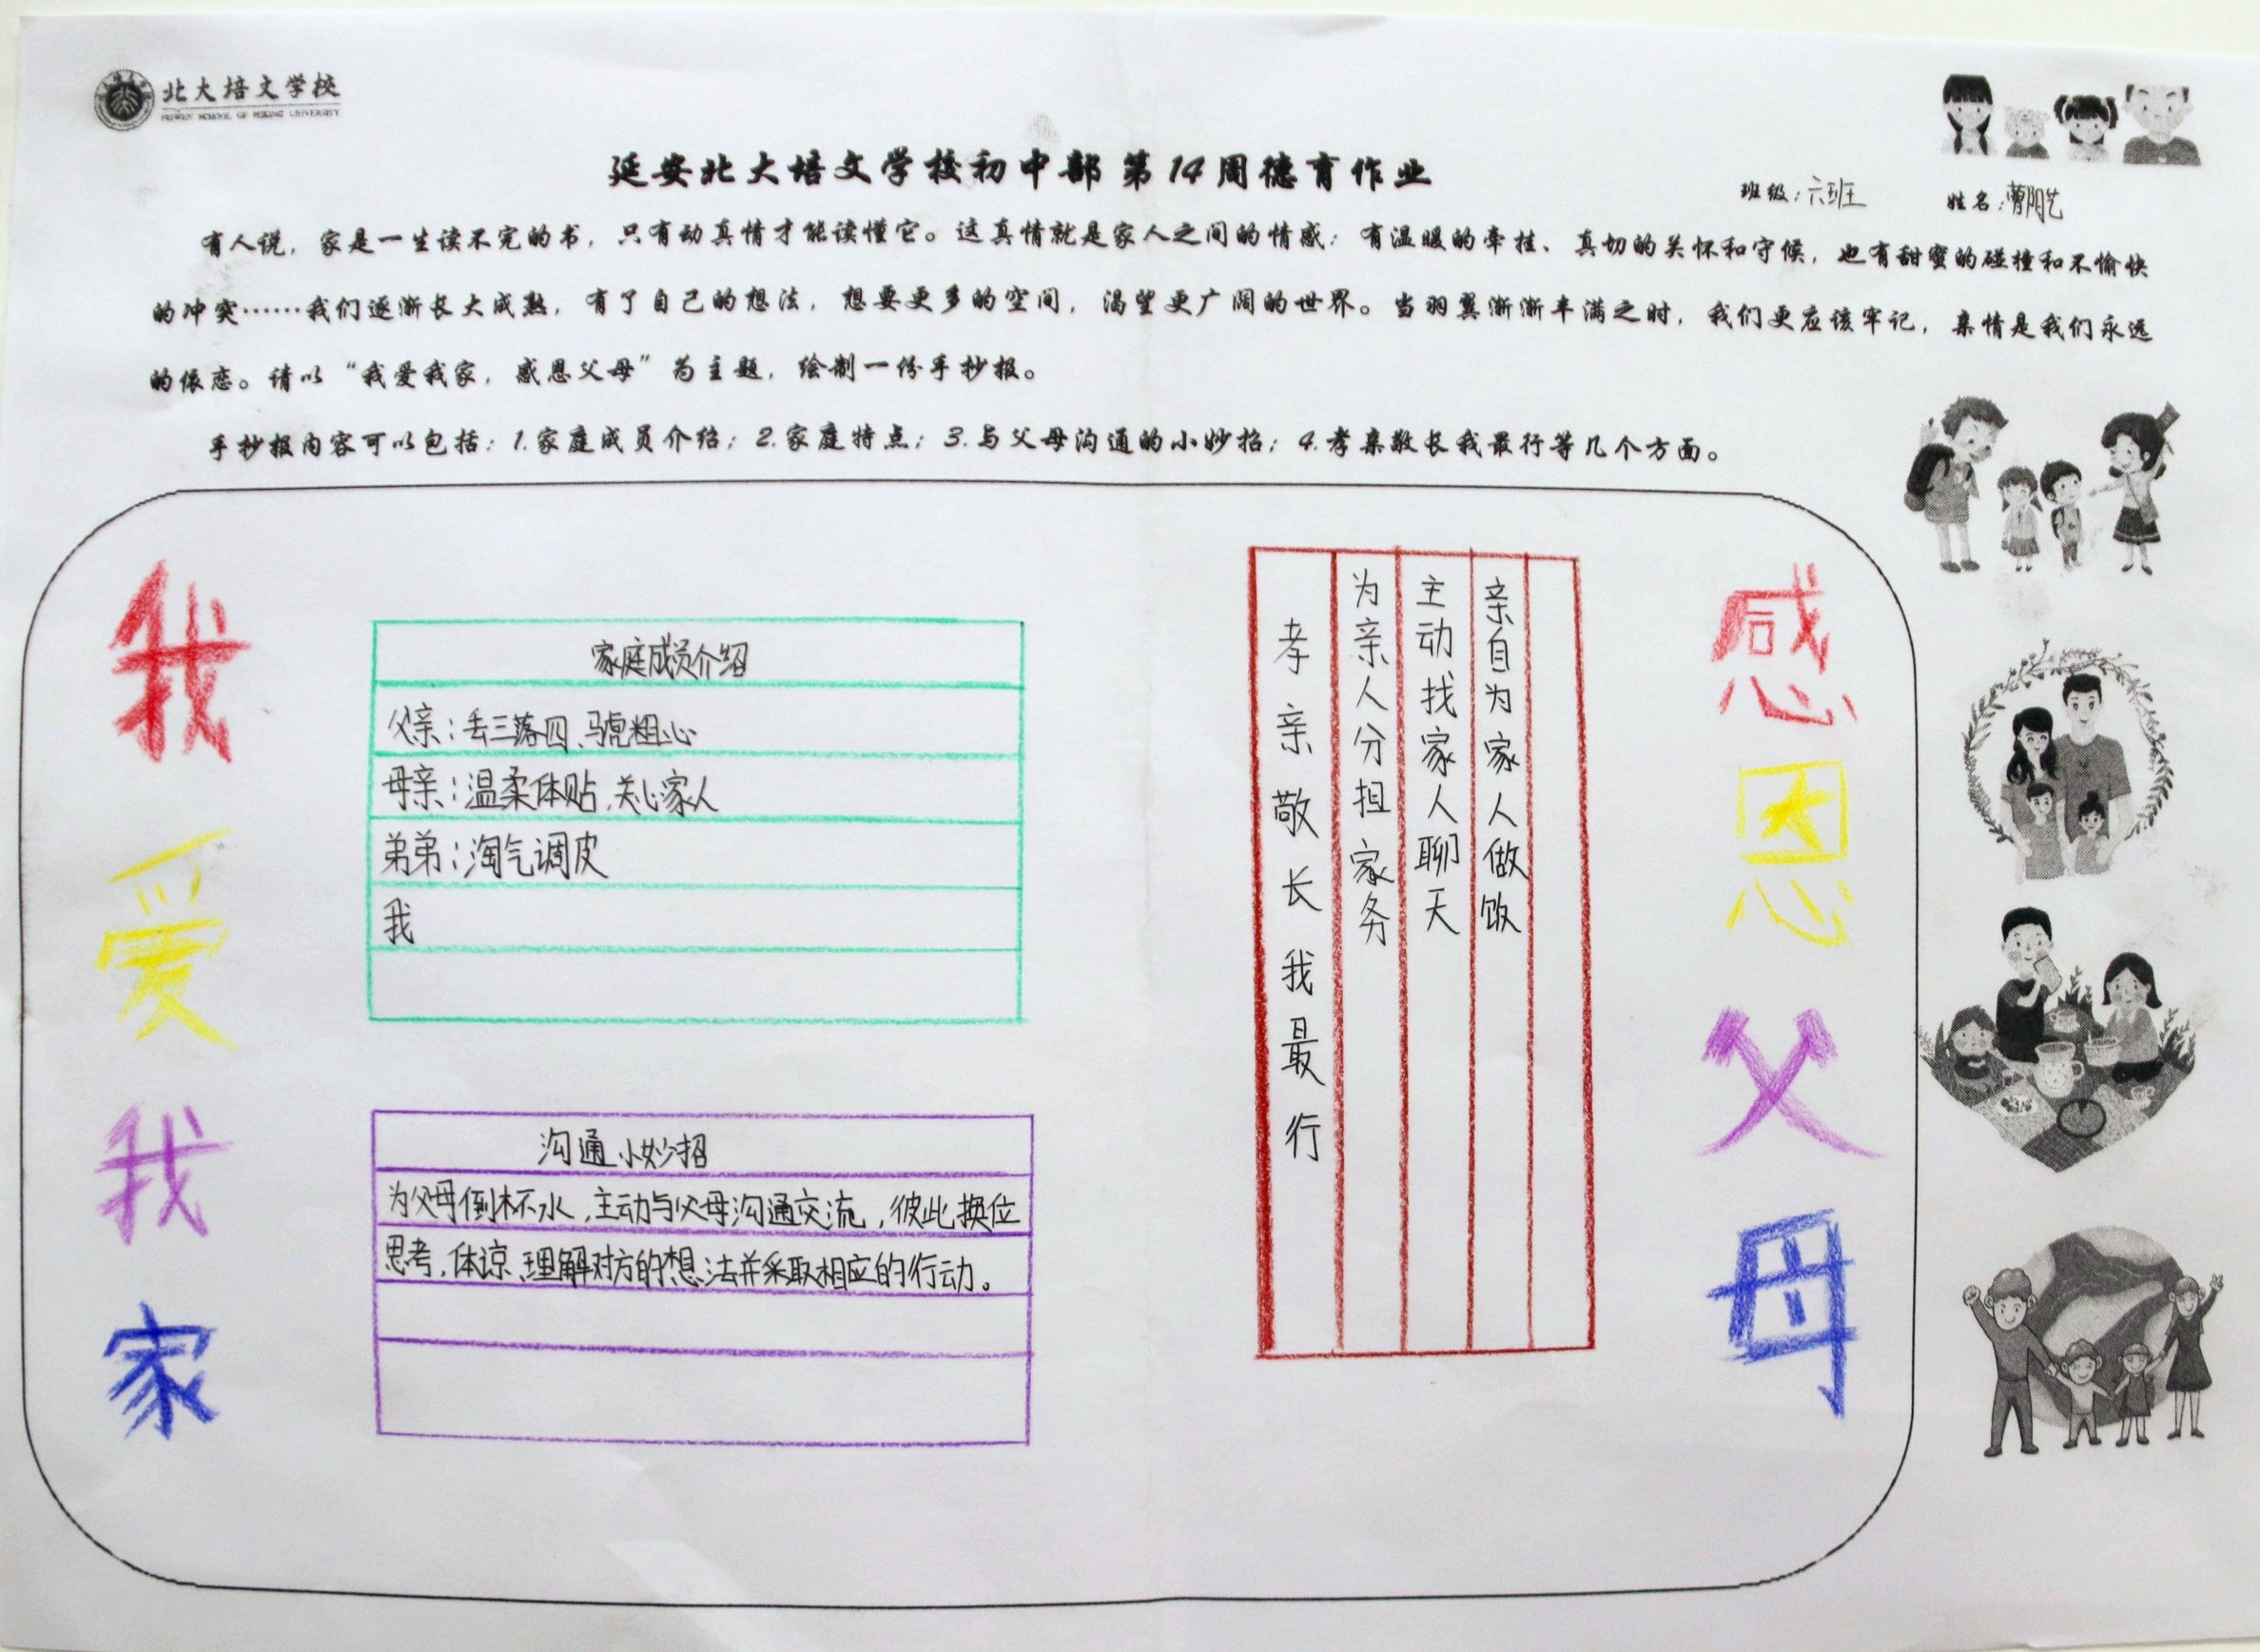 北大培文学校
PEIWEN SCHOOL OF PEKING UNIVERSITY
延安北大培文学校初中部第14周德育作业
班级：六班 姓名：曹阳艺
有人说，家是一生读不完的书，只有动真情才能读懂它。这真情就是家人之间的情感：有温暖的牵挂、真切的关怀和守候，也有甜蜜的碰撞和不愉快
的冲突……我们逐渐长大成熟，有了自己的想法，想要更多的空间，渴望更广阔的世界。当羽翼渐渐丰满之时，我们更应该牢记，亲情是我们永远
的依恋。请以“我爱我家，感恩父母”为主题，绘制一份手抄报。
手抄报内容可以包括：1.家庭成员介绍；2.家庭特点；3.与父母沟通的小妙招；4.孝亲敬长我最行等几个方面。
我爱我家
家庭成员介绍
父亲：丢三落四、马虎粗心
母亲：温柔体贴，关心家人
弟弟：淘气调皮
我
沟通小妙招
为父母倒杯水，主动与父母沟通交流，彼此换位
思考，体谅、理解对方的想法并采取相应的行动。
孝亲敬长我最行
为亲人分担家务
主动找家人聊天
亲自为家人做饭
感恩父母